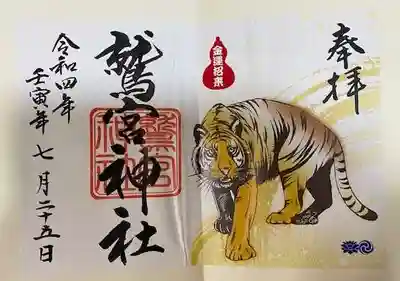 奉拝
金運招来
鷲宮神社
令和四年
壬寅年 七月二十五日